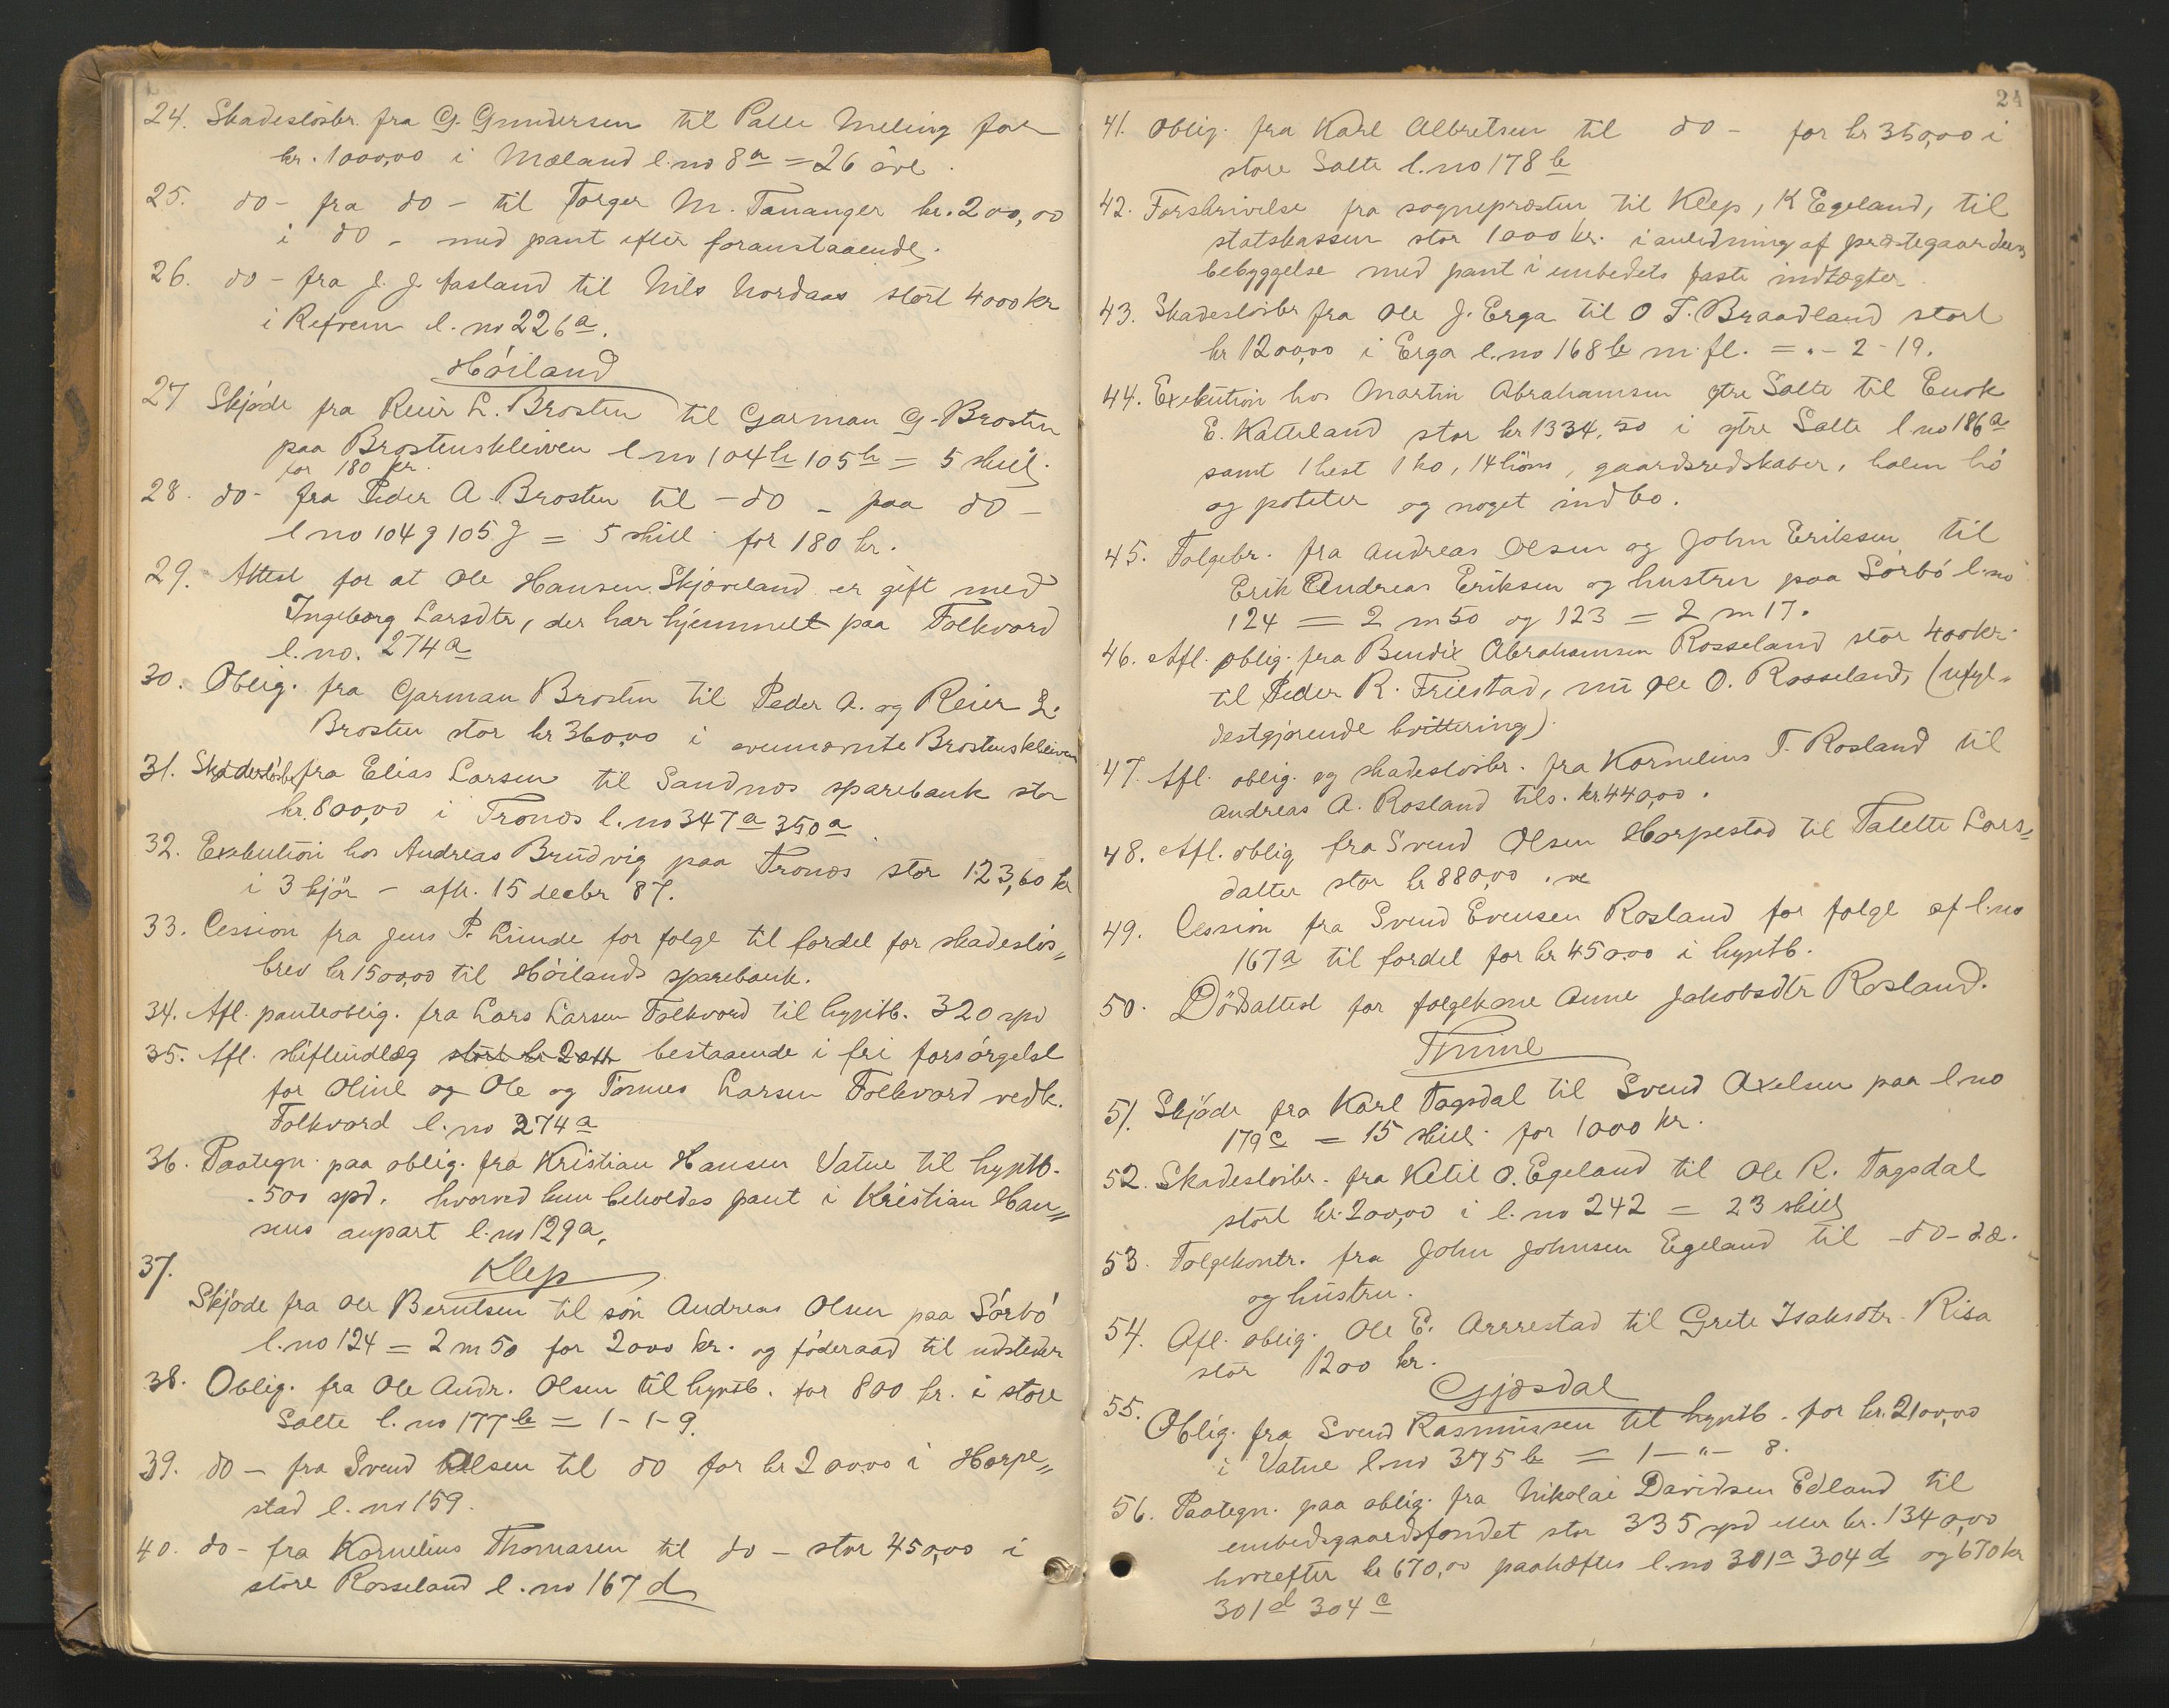 24. Skadeslösbr. fra G. Gundersen til Palle Meling for
kr. 1000,00 i Mæland l.no 8a = 26 öre.
25. do - fra do - til Torger M. Tananger kr. 200,00
i do - med pant efter foranstaaende.
26. do - fra J. J. Aasland til Nils Nordaas stort 4000 kr
i Refsem l. no 226a.
Höiland
27 Skjöde fra Reier L. Brosten til Garman G. Brosten
paa Brostenskleiven l no 104h 105h = 5 skill.
for 180 kr.
28. do - fra Peder A. Brosten til - do - paa do -
l no 104g 105g = 5 skill for 180 kr.
29. Attest for at Ole Hansen Skjæveland er gift med
Ingeborg Larsdtr, der har hjemmelt paa Folkvord
l. no. 274a
30. Oblig. fra Garman Brosten til Peder A. og Reier L.
Brosten stor kr 360,00 i ovennævnte Brostenskleiven
31. Skadeslösbr fra Elias Larsen til Sandnæs sparebank stor
kr. 800,00 i Tronæs l. no 347a 350a
32. Exekution hos Andreas Brudvig paa Tronæs stor 123,60 kr
i 3 kjör - afh. 15 decbr 87.
33. Cession fra Jens P. Lunde for folge til fordel for skadeslös„
brev kr 1500,00 til Höilands sparebank.
34. Afl. panteoblig. fra Lars Larsen Folkvord til hyptb. 320 spd
35. Afl. skifteudlæg stort kr 2 bestaaende i fri forsörgelse
for Oline og Ole og Tönnes Larsen Folkvord vedk.
Folkvord l. no 274a
36. Paategn. paa oblig. fra Kristian Hansen Vatne til hyptb.
500 spd. hvorved kun beholdes pant i Kristian Han„
sens anpart l. no 129a.
37. Klep
Skjöde fra Ole Berntsen til sön Andreas Olsen paa Sörbö
l. no 124 = 2 m 50 for 2000 kr. og föderaad til udsteder
38. Oblig. fra Ole Andr. Olsen til hyptb. for 800 kr. i store
Salte l. no 177b = 1-1-9.
39. do - fra Svend Olsen til do for kr 2000,00 i Horpe„
stad l. no 159.
40. do - fra Kornelius Thomasen til do - stor 450,00 i
store Rosseland l. no 167d
24
41. Oblig. fra Karl Albretsen til do - for kr 350,00 i
store Salte l. no 178b
42. Forskrivelse fra sognepræsten til Klep, K Egeland, til
statskassen stor 1000 kr. i anledning af præstegaardens
bebyggelse med pant i embedets faste indtægter.
43. Skadeslösbr fra Ole J. Erga til O T. Braadland stort
kr 1200,00 i Erga l. no 168b m. fl. = „ - 2 - 19.
44. Exekution hos Martin Abrahamsen ytre Salte til Enok
E. Katteland stor kr 1334,50 i ytre Salte l no 186a
samt 1 hest 1 ko, 14 höns, gaardsredskaber, halm hö
og poteter og noget indbo.
45. Folgebr. fra Andreas Olsen og John Eriksen til
Erik Andreas Eriksen og hustru paa Sörbö l. no
124 = 2 m 50 og 123 = 2 m 17.
46. Afl. oblig. fra Bendix Abrahamsen Rosseland stor 400 kr.
til Peder R. Friestad, nu Ole O. Rosseland, (utyl„
destgjørende kvittering).
47. Afl. oblig. og skadeslösbr. fra Kornelius T. Rosland til
Andreas A. Rosland tils. kr 440,00.
48. Afl. oblig fra Svend Olsen Horpestad til Talette Lars„
datter stor kr 880,00.
49. Cession fra Svend Evensen Rosland for folge af l. no
167a til fordel for kr 450,00 i hyptb.
50. Dödsattest for folgekone Anne Jakobsdtr Rosland.
Thime
51. Skjöde fra Karl Tagsdal til Svend Axelsen paa l no
179c = 15 skill. for 1000 kr.
52. Skadeslösbr. fra Ketil O. Egeland til Ole R. Tagsdal
stort kr. 200,00 i l. no 242 = 23 skill
53. Folgekontr. fra John Johnsen Egeland til - do - d.æ.
og hustru.
54. Afl. oblig. Ole E. Arrrestad til Grete Isaksdtr. Risa
stor 1200 kr.
Gjæsdal
55. Oblig. fra Svend Rasmussen til hyptb. for kr. 2100,00
i Vatne l. no 375b = 1 - „ - 8.
56. Paategn. paa oblig. fra Nikolai Davidsen Edland til
embedsgaardsfondet stor 335 spd eller kr. 1340,00
hvorefter kr 670,00 paahæftes l. no 301a 304d og 670 kr
301d 304c